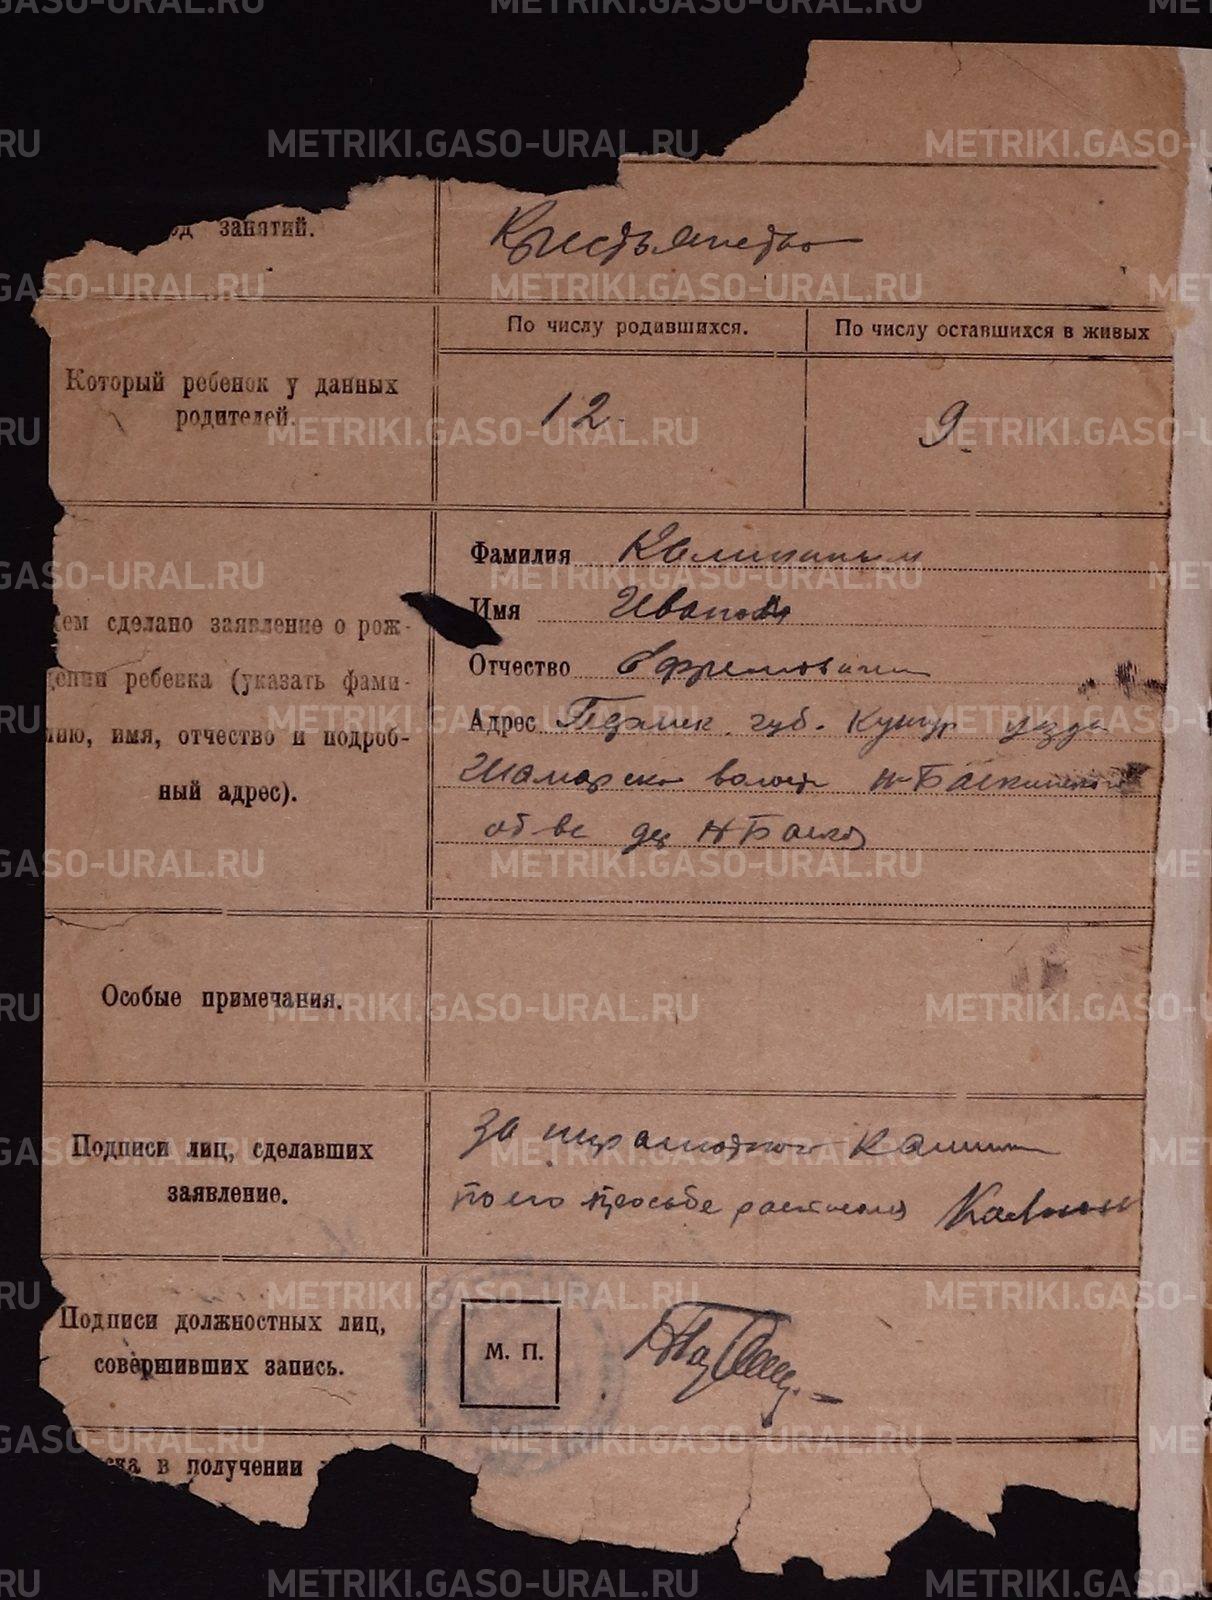 од занятий.
Крестьянство
По числу родившихся.
По числу оставшихся в живых
Который ребенок у данных
родителей.
12.
9.
Кем сделано заявление о рож-
дении ребенка (указать фами-
лию, имя, отчество и подроб-
ный адрес).
Фамилия Калининым
Имя Иваном
Отчество Ефремовичем
Адрес губ. Кунгур уезда
Шамарской волости Н-Баскинского
об-ва дер Н Баской
Особые примечания.
Подписи лиц, сделавших
заявление.
За неграмотного Калинин
по его просьбе расписался Калинин
Подписи должностных лиц,
совершивших запись.
М. П.
в получении
METRIKI.GASO-URAL.RU